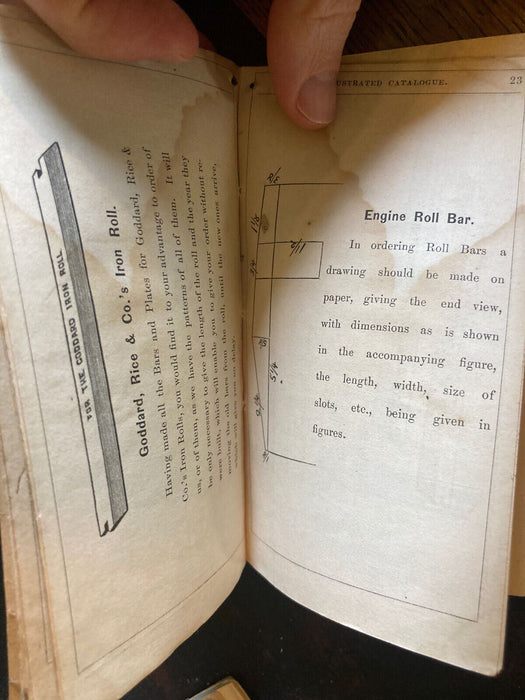 FOR THE GODDARD IRON ROLL.
Goddard, Rice & Co.'s Iron Roll.
Having made all the Bars and Plates for Goddard, Rice &
Co.'s Iron Rolls, you would find it to your advantage to order of
us, or of them, as we have the patterns of all of them. It will
be only necessary to give the length of the roll and the year they
were built, which will enable you to give your order without re-
moving the old bars from the roll until the new ones arrive,
USTRATED CATALOGUE.
23
Engine Roll Bar.
In ordering Roll Bars a
drawing should be made on
paper, giving the end view,
with dimensions as is shown
in the accompanying figure,
the length, width, size of
slots, etc., being given in
figures.
1 1/2
3/4
5 1/4